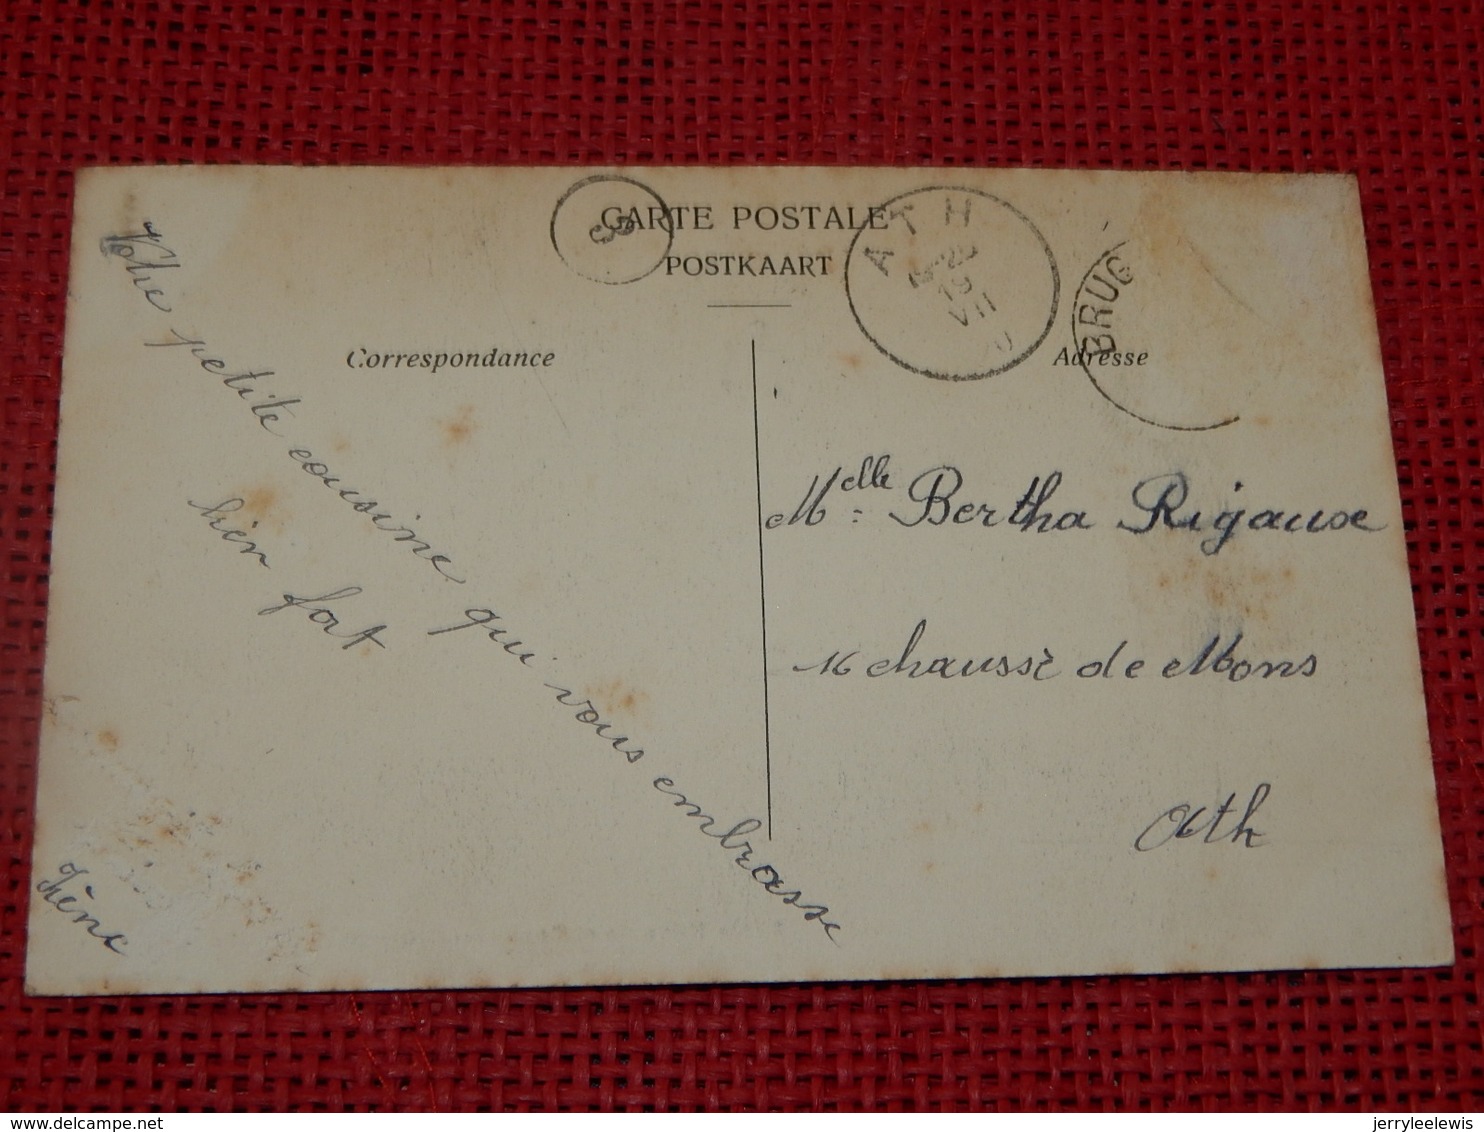 CARTE POSTALE
POSTKAART
Correspondance
Adresse
ATH
19
VII
BRUG
Votre petite cousine qui vous embrasse
bien fort
Irène
Melle Bertha Rigaux
16 chaussé de Mons
Ath
jerryleelewis